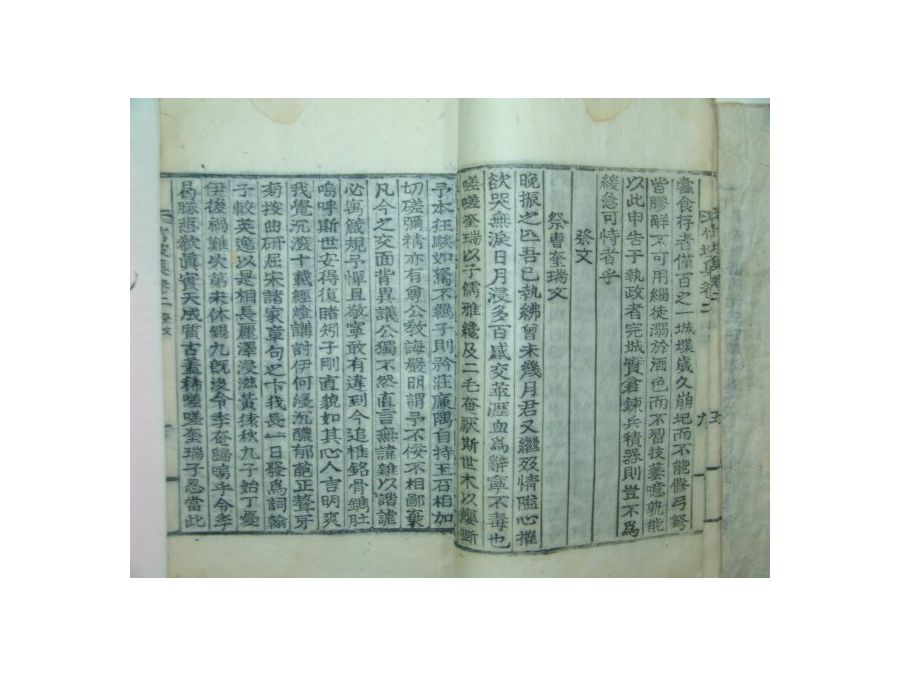 蠹食存者僅百之一城堞歲久崩圮而不能修弓弩
皆膠解不可用緇徒溺於酒色而不習技藝噫孰能
以此申告于執政者完城實倉鍊兵積器則豈不爲
緩急可恃者乎
祭文
祭曹奎瑞文
晚振之亾吾已執紼曾未幾月君又繼歿情隘心摧
欲哭無淚日月浸多百感交萃瀝血爲辭寧不毒也
嗟嗟奎瑞以子儒雅纔及二毛奄厭斯世木以癭斷
予本狂騃如駑不羈子則矜莊廉隅自持玉石相加
切磋彌精亦有尊公敎誨嚴明謂予不佞不相鄙棄
凡今之交面背異議公獨不然直言無諱雖以諧謔
必寓箴規予憚且敬寧敢有違到今追惟銘骨鐫肚
嗚呼斯世安得復睹矧子剛直貌如其心人言明爽
我覺沉深十載經燈講討伊何浸沉醲郁葩正聱牙
蒭拨曲研屈宋諸家章句之
我長一日發爲詞翰
子較英逸以是相長麗澤浸滋黃猿秋九子始丁憂
伊後禍難次第未休錫九旣沒令李奄歸嗚乎今李
曷勝悲欷眞實天成質古蓋稀嗟嗟奎瑞子忍當此
卷二
祭文